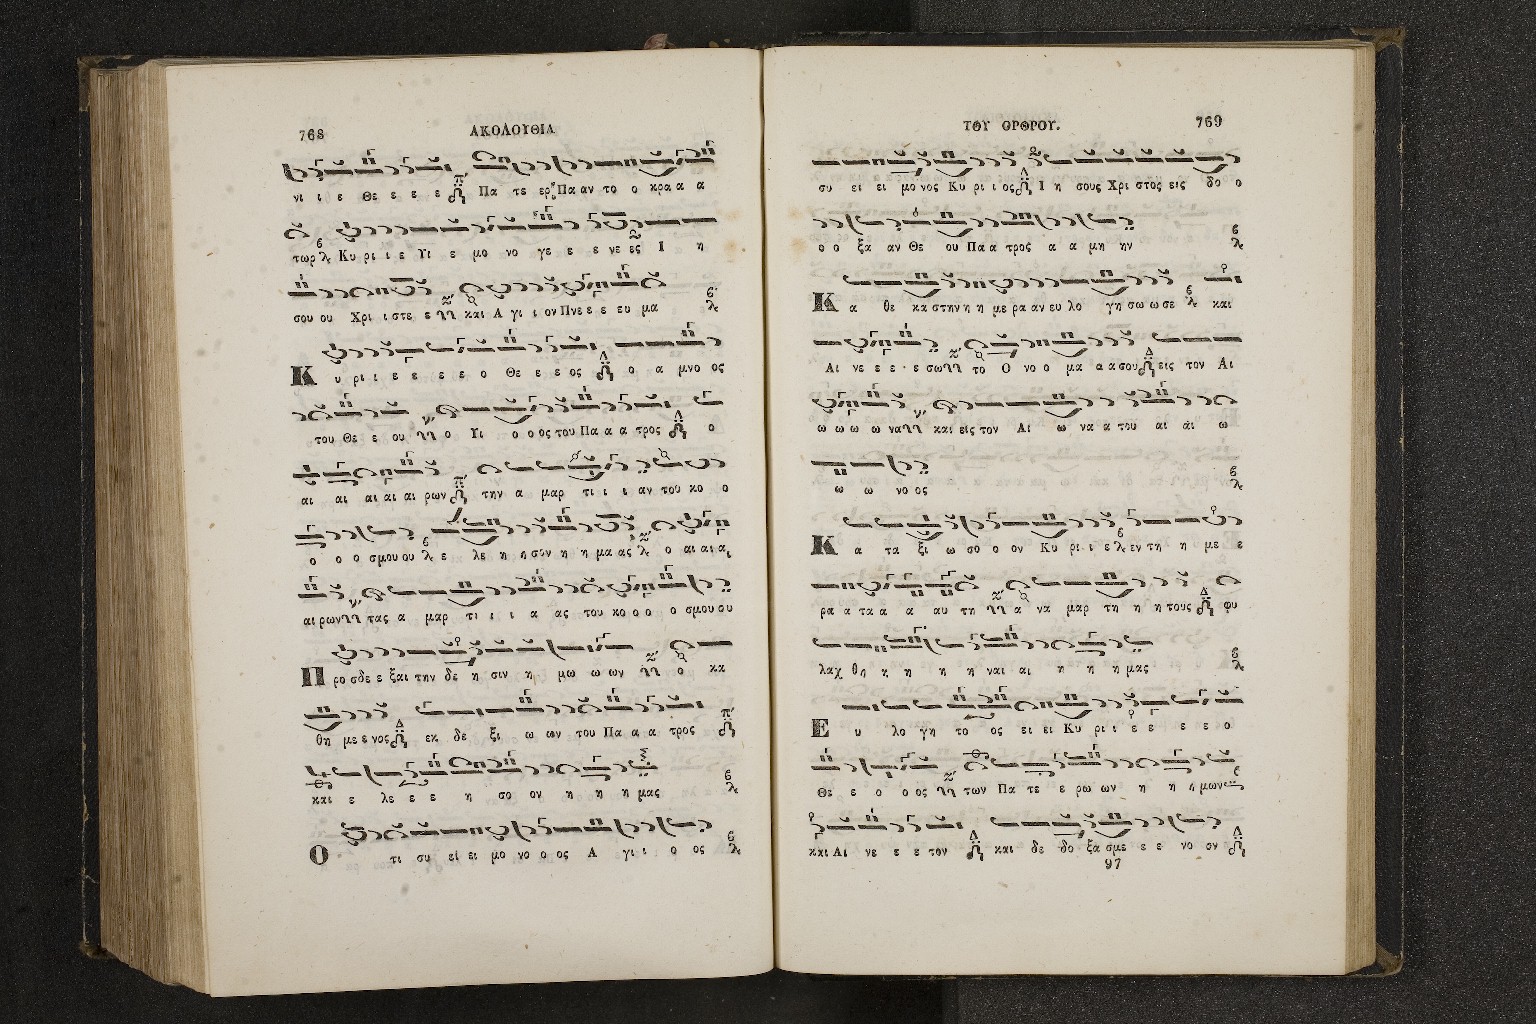 768
ΑΚΟΛΟΥΘΙΑ
νι ι ε Θε ε ε ε Πα τε ερ Πα αν το ο κρα α α
τωρ Κυ ρι ι ε Υι ε μο νο γε ε ε νε ες Ι η
σου ου Χρι ι στε ε και Α γι ι ον Πνε ε ε ευ μα
Κ υ ρι ι ε ε ε ε ο Θε ε ε ος ο α μνο ος
του Θε ε ου ο Υι ο ο ος του Πα α α τρος ο
αι αι αι αι αι ρων την α μαρ τι ι ι αν του κο ο
ο ο ο σμου ου ε λε η η σον η η μα ας ο αι αι α
αι ρων τας α μαρ τι ι ι α ας του κο ο ο ο σμου ου
Π ρο σδε ε ξαι την δε η σιν η μω ω ων ο κα
θη με ε νος εκ δε ξι ω ων του Πα α α τρος
και ε λε ε ε η σο ον η η η μας
Ο τι συ εί ει μο νο ο ος Α γι ι ο ος
ΤΟΥ ΟΡΘΡΟΥ.
769
συ ει ει μο νος Κυ ρι ι ος Ι η σους Χρι στος εις δο ο
ο ο ξα αν Θε ου Πα α τρος α α μη ην
Κ α θε κα στην η η με ρα αν ευ λο γη σω ω σε και
Αι νε ε ε ε σω το Ο νο ο μα α α σου εις τον Αι
ω ω ω ω να και εις τον Αι ω να α του αι αι ω
ω ω νο ος
Κ α τα ξι ω σο ο ον Κυ ρι ι ε εν τη η με ε
ρα α τα α α αυ τη α να μαρ τη η η τους φυ
λαχ θη κ η η η ναι αι η η η μας
Ε υ λο γη το ος ει ει Κυ ρι ι ε ε ε ε ο
Θε ε ο ο ος των Πα τε ε ρω ων η η η μων
και Αι νε ε ε τον και δε δο ξα σμε ε ε νο ον
97